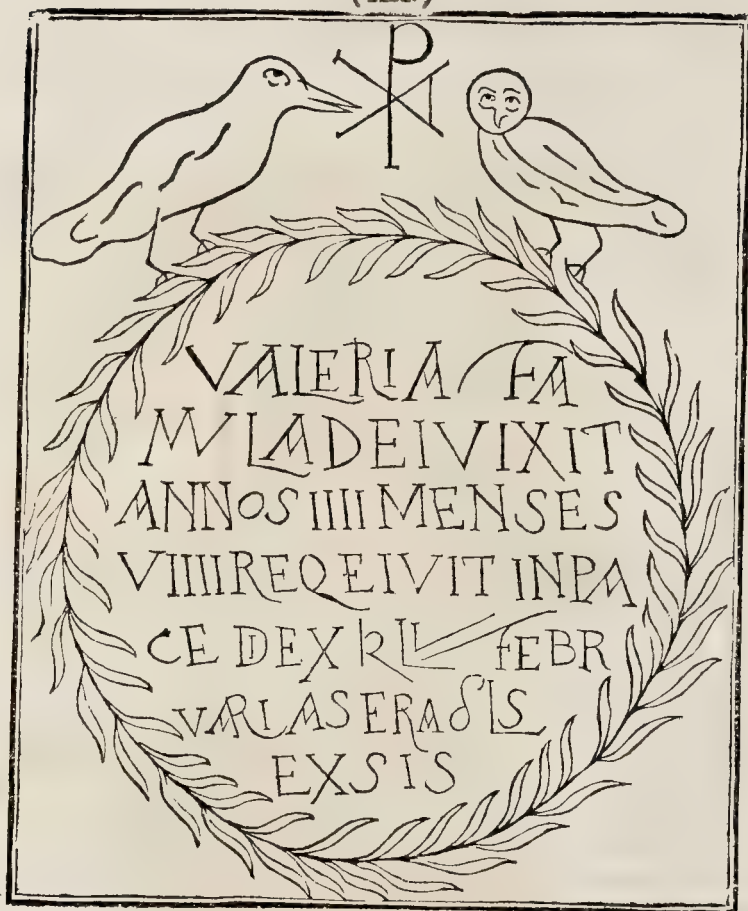 VALERIA FA
MVLA DEI VIXIT
ANNOS IIII MENSES
VIIII REQEIVIT IN PA
CE D EX FEBR
VARIAS ERA
EXSIS